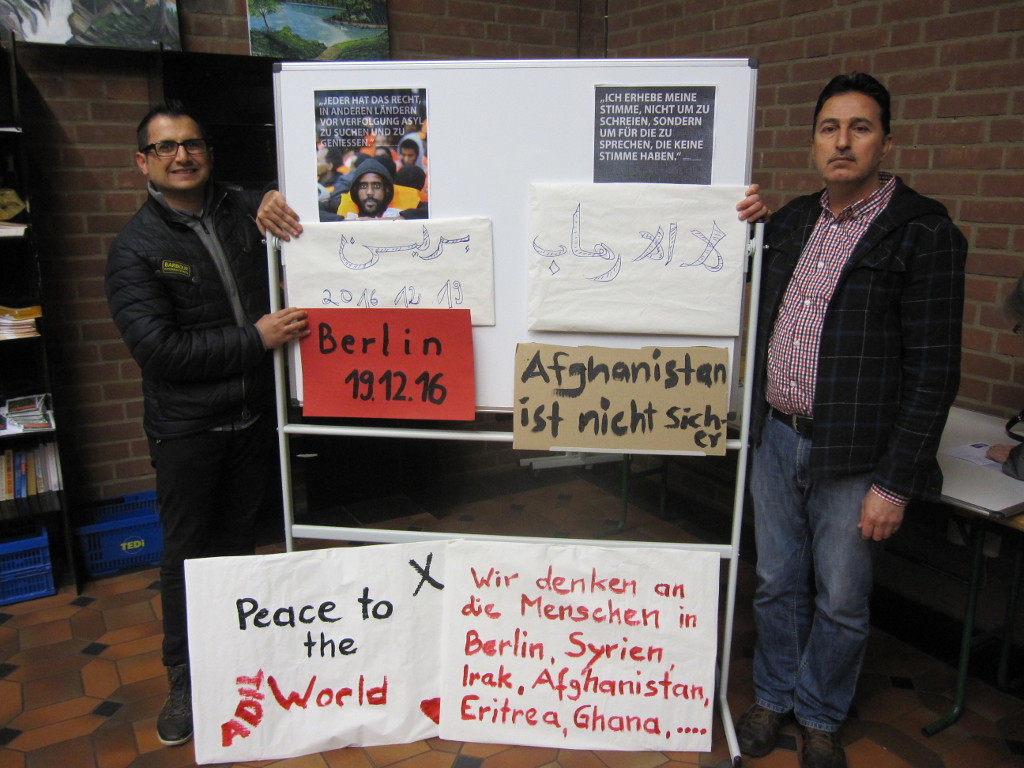 „JEDER HAT DAS RECHT,
IN ANDEREN LÄNDERN
VOR VERFOLGUNG ASYL
ZU SUCHEN UND ZU
GENIESSEN."
„ICH ERHEBE MEINE
STIMME, NICHT UM ZU
SCHREIEN, SONDERN
UM FÜR DIE ZU
SPRECHEN, DIE KEINE
STIMME HABEN."
برلين
2016 12 19
لا للارهاب
Berlin
19.12.16
Afghanistan
ist nicht sich-
er
Peace to
the
World
ADIL
X
Wir denken an
die Menschen in
Berlin, Syrien,
Irak, Afghanistan,
Eritrea, Ghana, ....
TEDi